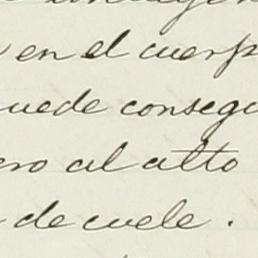 en el cuerp
uede consegu
ero al alto
de cuele.